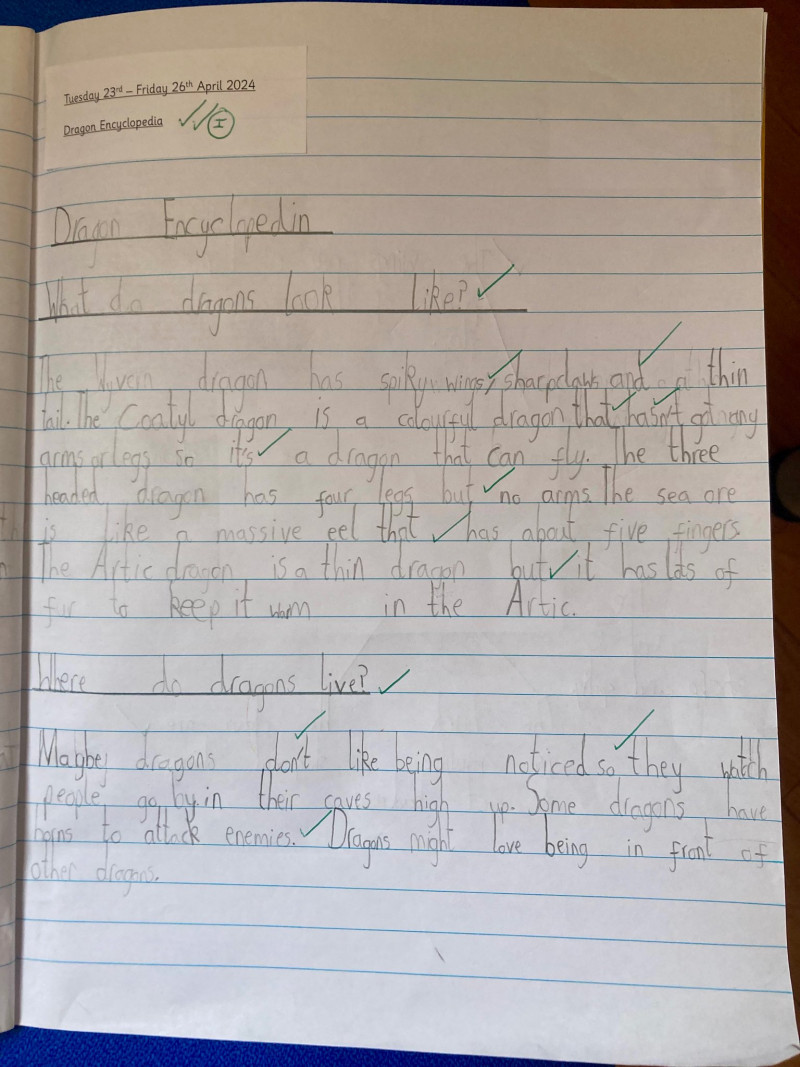 Tuesday 23rd – Friday 26th April 2024
Dragon Encyclopedia
I
Dragon Encyclopedin
What do dragons look like?
The Wyvern dragon has spiky wings, sharp claws and a thin
tail. The Coatyl dragon is a colourful dragon that hasn't got any
arms or legs so it's a dragon that can fly. The three
headed dragon has four legs but no arms. The sea one
is like a massive eel that has about five fingers.
The Artic dragon is a thin dragon but it has lots of
fur to keep it warm in the Artic.
Where do dragons live?
Maybe dragons don't like being noticed so they watch
people go by in their caves high up. Some dragons have
horns to attack enemies. Dragons might love being in front of
other dragons.